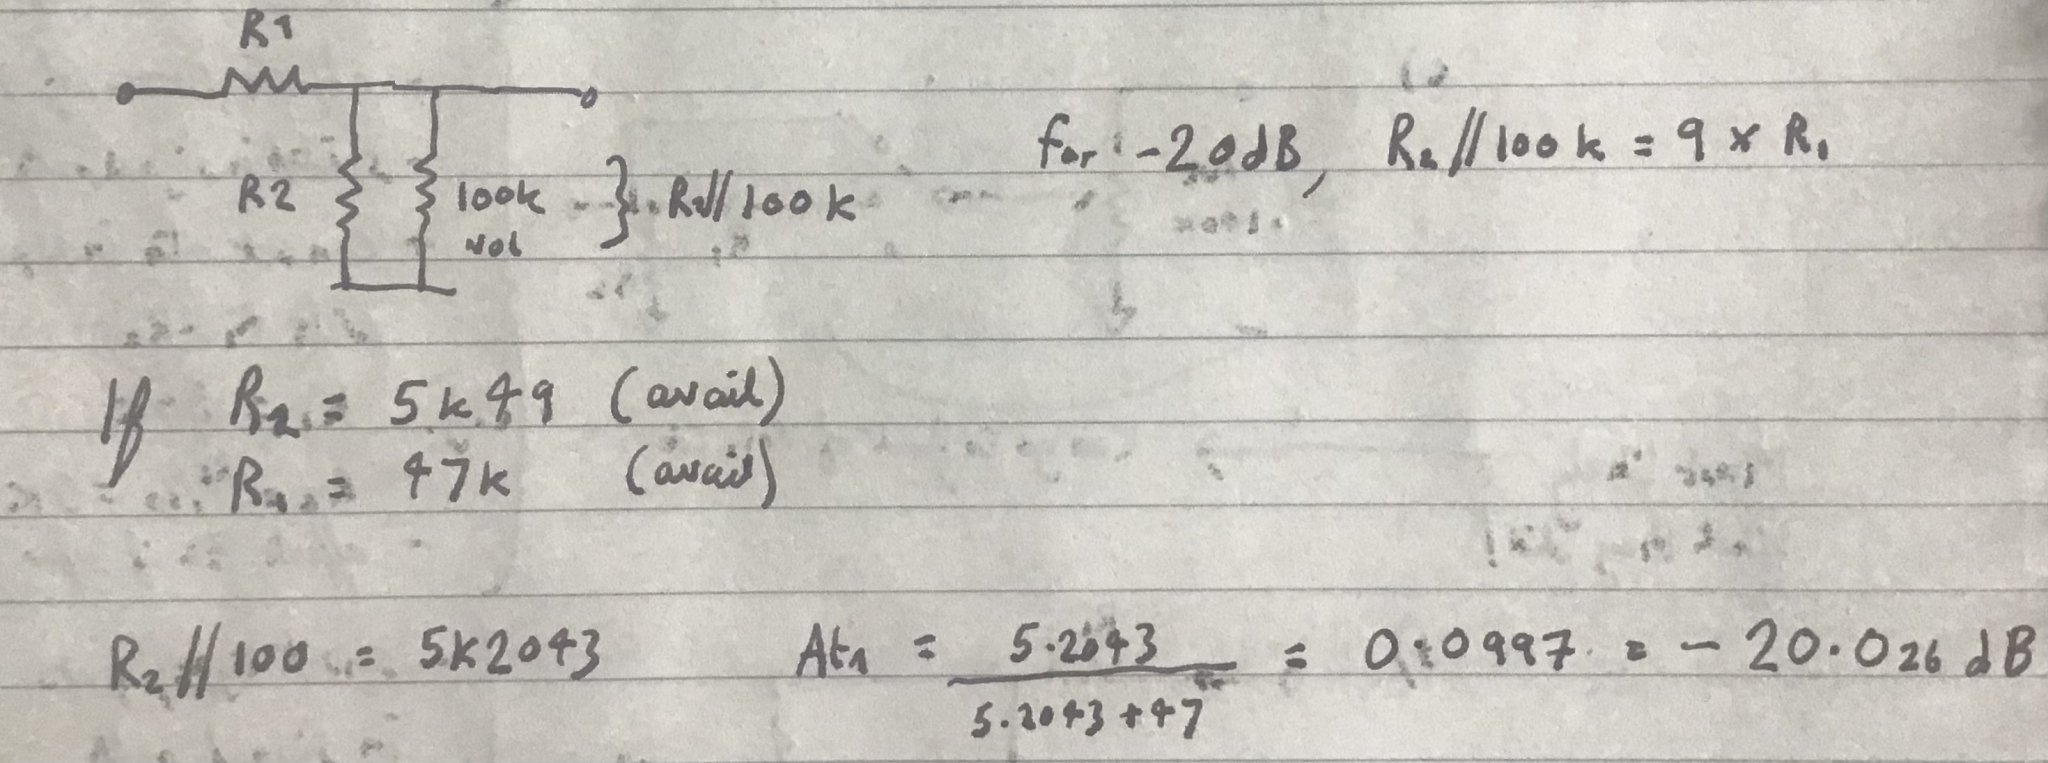 R1
for -20dB, R2//100k = 9 x R1
R2 100k } R2//100k
vol
If R2 = 5k49 (avail)
R1 = 47k (avail)
R2//100 = 5k2043 Atn = 5.2043 / 5.2043+47 = 0.0997 = -20.026 dB